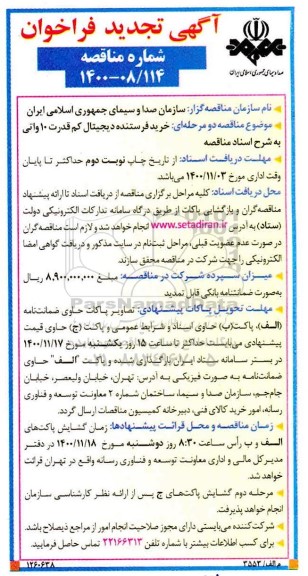 آگهی تجدید فراخوان
شماره مناقصه
۱۴۰۰-۰۸/۱۱۴
صدا و سیمای جمهوری اسلامی ایران
نام سازمان مناقصه گزار: سازمان صدا و سیمای جمهوری اسلامی ایران
موضوع مناقصه دو مرحله‌ای: خرید فرستنده دیجیتال کم قدرت ۱۰ واتی
به شرح اسناد مناقصه
مهلت دریافت اسناد: از تاریخ چاپ نوبت دوم حداکثر تا پایان
وقت اداری مورخ ۱۴۰۰/۱۱/۰۳ می‌باشد
محل دریافت اسناد: کلیه مراحل برگزاری مناقصه از دریافت اسناد تا ارائه پیشنهاد
مناقصه‌گران و بازگشایی پاکات از طریق درگاه سامانه تدارکات الکترونیکی دولت
(ستاد) به آدرس www.setadiran.ir انجام خواهد شد و لازم است مناقصه‌گران
در صورت عدم عضویت قبلی، مراحل ثبت‌نام در سایت مذکور و دریافت گواهی امضا
الکترونیکی را جهت شرکت در مناقصه محقق سازند.
میزان سپرده شرکت در مناقصه: مبلغ ۸,۹۰۰,۰۰۰,۰۰۰ ریال
به‌صورت ضمانتنامه بانکی قابل تمدید
مهلت تحویل پاکات پیشنهادی: تصاویر پاکات حاوی ضمانت‌نامه
(الف)، پاکت(ب) حاوی اسناد و شرایط عمومی و پاکت (ج) حاوی قیمت
پیشنهادی می‌بایست حداکثر تا ساعت ۱۵ روز یکشنبه مورخ ۱۴۰۰/۱۱/۱۷
در بستر سامانه ستاد ایران بارگذاری شده و پاکت "الف" حاوی
ضمانت‌نامه به صورت فیزیکی به آدرس: تهران، خیابان ولیعصر، خیابان
جام‌جم، سازمان صدا و سیما، ساختمان شماره ۲ معاونت توسعه و فناوری
رسانه، امور خرید کالای فنی، دبیرخانه کمیسیون مناقصات ارسال گردد.
زمان مناقصه و محل قرائت پیشنهادها: زمان گشایش پاکت‌های
الف و ب رأس ساعت ۸:۳۰ روز دوشنبه مورخ ۱۴۰۰/۱۱/۱۸ در دفتر
مدیرکل مالی و اداری معاونت توسعه و فناوری رسانه واقع در تهران قرائت
خواهد شد.
مرحله دوم گشایش پاکت‌های ج پس از ارائه نظر کارشناسی سازمان
انجام خواهد پذیرفت.
شرکت کننده می‌بایستی دارای مجوز صلاحیت انجام امور از مراجع ذیصلاح باشد.
برای کسب اطلاعات بیشتر با شماره تلفن ۲۲۱۶۶۳۱۳ تماس حاصل فرمایید.
م الف/ ۳۵۵۳
۱۲۶۰۶۳۸